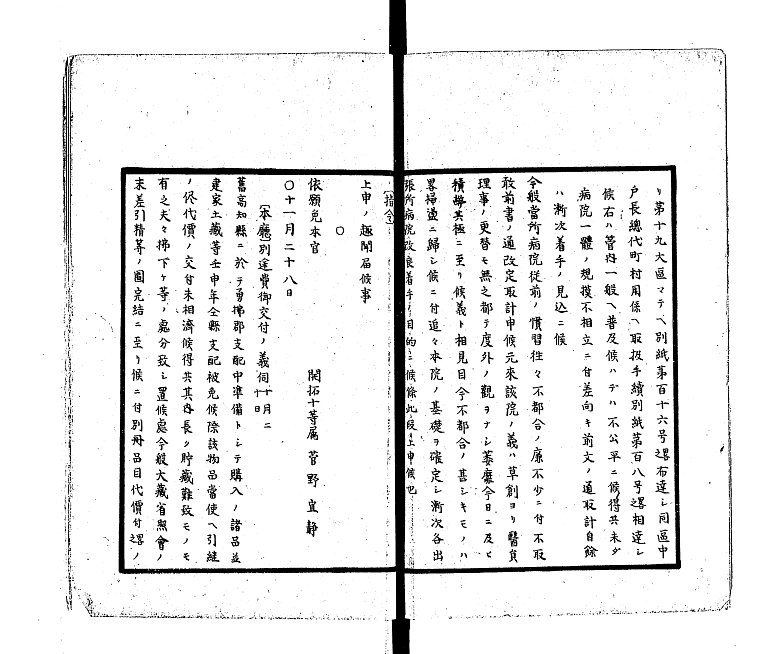 リ第十九大區マテヘ別紙第百十六号畧布達シ同區中
戸長總代町村用係ヘ取扱手續別紙第百八号畧相達シ
候右ハ管内一般ヘ普及候ハテハ不公平ニ候得共未タ
病院一體ノ規摸不相立ニ付差向キ前文ノ通取計自餘
ハ漸次着手ノ見込ニ候
今般當所病院従前ノ慣習往々不都合ノ廉不少ニ付不取
敢前書ノ通改定取計申候元來該院ノ義ハ草創ヨリ醫員
理事ノ更替モ無之都テ度外ノ觀ヲナシ萎靡今日ニ及ヒ
積弊其極ニ至リ候義ト相見目今不都合ノ甚シキモノハ
畧掃盪ニ歸シ候ニ付追々本院ノ基礎ヲ確定シ漸次各出
張所病院改良着手ノ目的ニ候條此段上申候也
〔指令〕
上申ノ趣聞届候事
〇
開拓十等属 菅野宜静
依願免本官
〇十一月二十八日
〔本廳別途費御交付ノ義伺十月二十日
舊高知縣ニ於テ勇拂郡支配中準備トシテ購入ノ諸品並
建家土藏等壬申年全縣支配被免候際該物品當使ヘ引継
ノ代價ノ交付未相濟候得共其内長ク貯藏難致モノモ
有之夫々拂下ケ等ノ處分致シ置候處今般大藏省照會ノ
末差引精算ノ圖完結ニ至リ候ニ付別冊品目代價付畧ノ